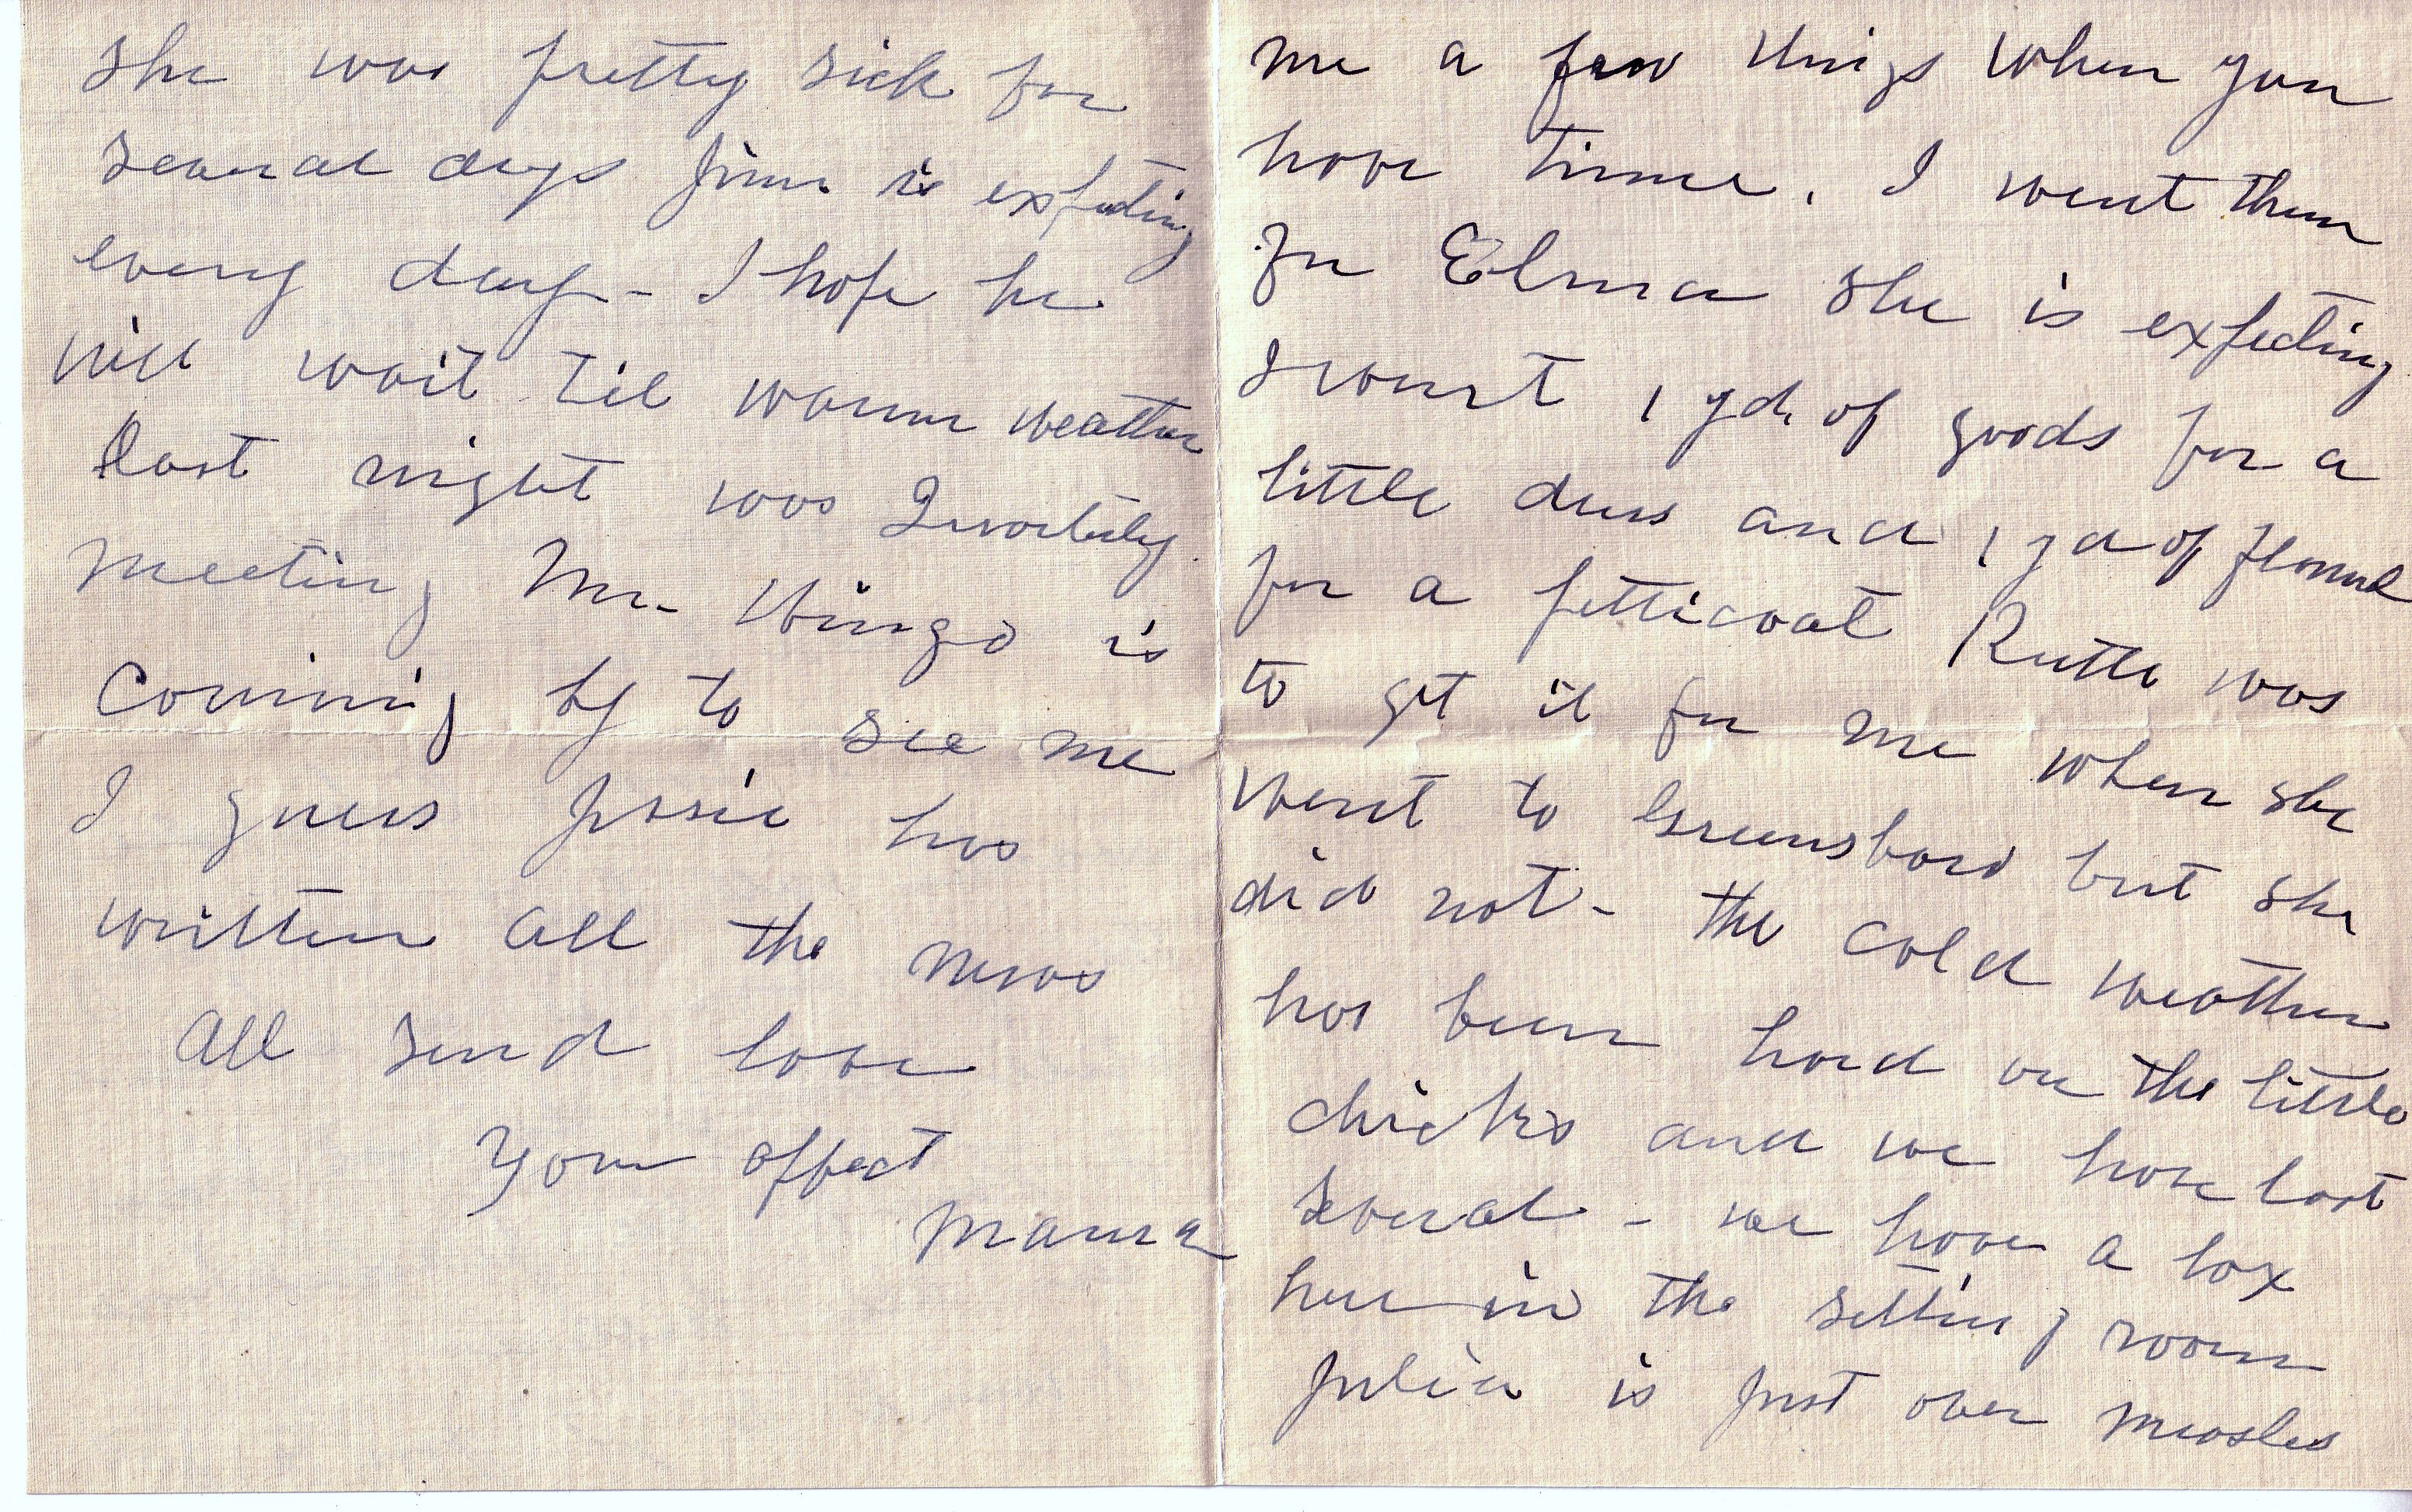 me a few things when you
have time. I want them
for Elma she is expecting
I want 1 yd. of goods for a
little dress and 1 yd of flannel
for a petticoat Ruth was
to get it for me when she
went to Greensboro but she
did not - the cold weather
has been hard on the little
chicks and we have lost
several - we have a box
here in the setting room
Julia is just over measles
She was pretty sick for
several days Jim is expecting
every day - I hope he
will wait til warm weather
Last night was Quarterly
meeting Mr. Wingo is
coming by to see me
I guess Jessie has
written all the news
All send love
Your affect
Mama